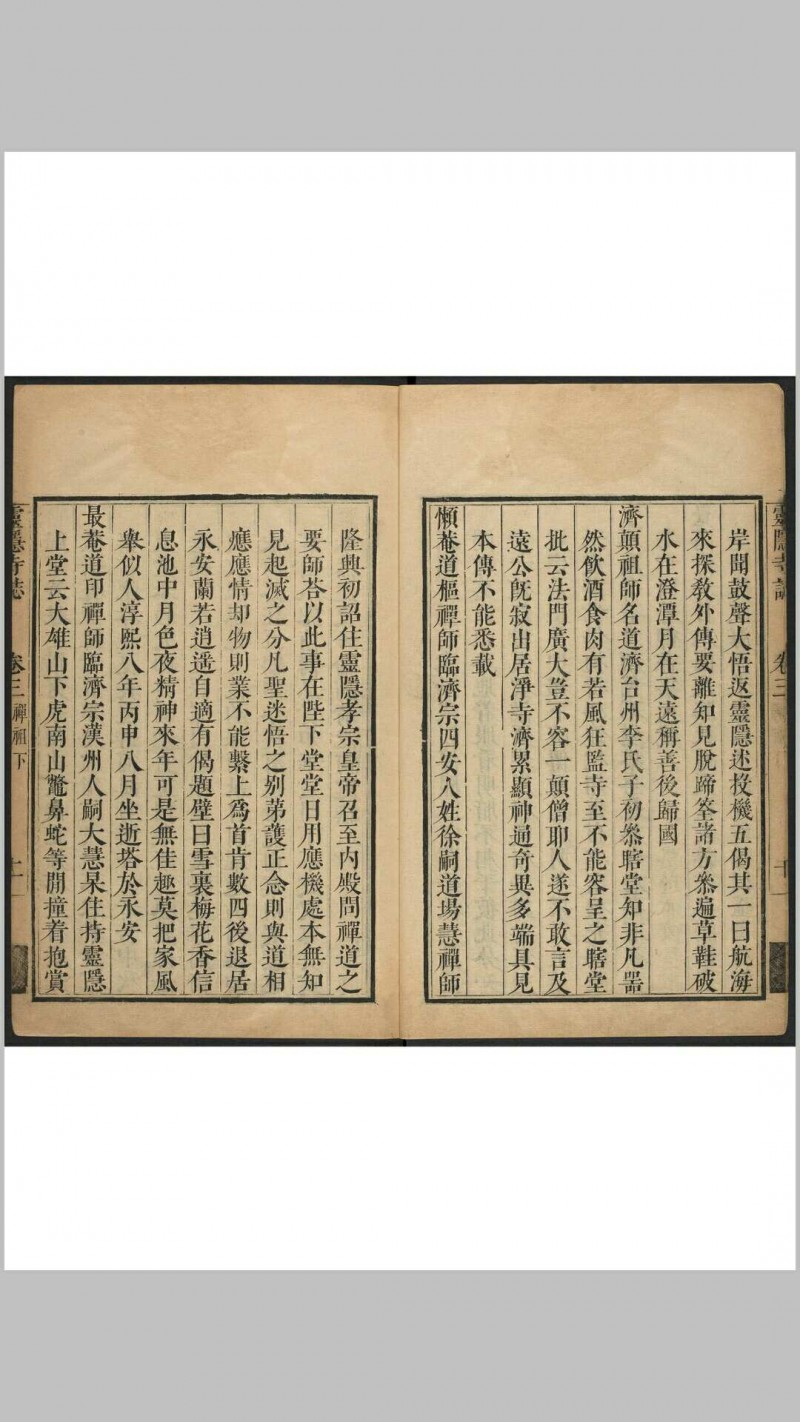 靈隱寺誌 卷三 十
岸聞鼓聲大悟返靈隱述投機五偈其一曰航海
來探敎外傳要離知見脫蹄筌諸方叅遍草鞋破
水在澄潭月在天遠稱善後歸國
濟顛祖師名道濟台州李氏子初叅瞎堂知非凡噐
然飲酒食肉有若風狂監寺至不能容呈之瞎堂
批云法門廣大豈不容一顛僧耶人遂不敢言及
遠公旣寂出居淨寺濟累顯神通奇異多端具見
本傳不能悉載
懶菴道樞禪師臨濟宗四安人姓徐嗣道場慧禪師
隆興初詔住靈隱孝宗皇帝召至內殿問禪道之
要師荅以此事在陛下堂堂日用應機處本無知
見起滅之分凡聖迷悟之别苐護正念則與道相
應應情却物則業不能繫上爲首肯數四後退居
永安蘭若逍遥自適有偈題壁曰雪裏梅花香信
息池中月色夜精神來年可是無佳趣莫把家風
舉似人淳熙八年丙申八月坐逝塔於永安
最菴道印禪師臨濟宗漢州人嗣大慧杲住持靈隱
上堂云大雄山下虎南山鼈鼻蛇等閒撞着抱賞
靈隱寺誌 卷三 禪祖下 十一